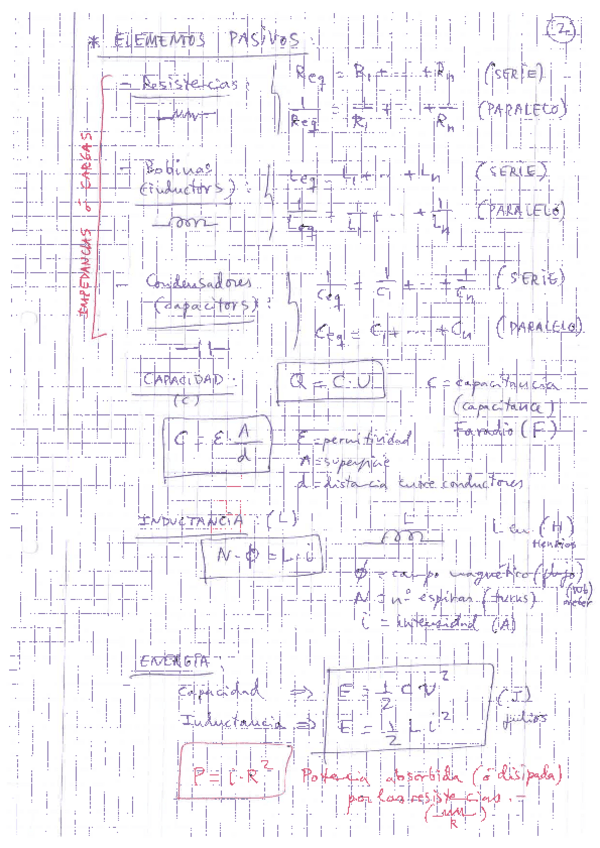 (2)
* ELEMENTOS PASIVOS:
IMPEDANCIAS ó CARGAS
- Resistencias: Req = R1 + ... + Rn (SERIE)
1/Req = 1/R1 + ... + 1/Rn (PARALELO)
- Bobinas (inductors): Leq = L1 + ... + Ln (SERIE)
1/Leq = 1/L1 + ... + 1/Ln (PARALELO)
- Condensadores (capacitors): 1/Ceq = 1/C1 + ... + 1/Cn (SERIE)
Ceq = C1 + ... + Cn (PARALELO)
CAPACIDAD (C)
Q = C·U
C = capacitancia
(capacitance)
Faradio (F)
C = ε·A/d
ε = permitividad
A = superficie
d = distancia entre conductores
INDUCTANCIA (L)
L
L en (H)
Henrios
N·ϕ = L·i
ϕ = campo magnético (flujo)
N = nº espiras (turns)
i = intensidad (A)
ENERGÍA:
Capacidad ⇒ E = 1/2 C V²
Inductancia ⇒ E = 1/2 L i²
(J)
julios
P = i·R²
Potencia absorbida (ó disipada)
por las resistencias.-
R